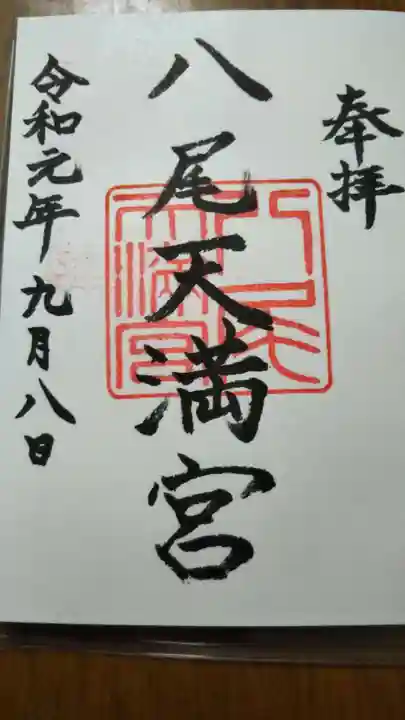 奉拝
八尾天満宮
八尾天満宮
令和元年九月八日